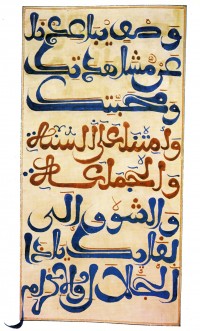 وصف يباعدنا
عن مشاهدتك
ومحبتك
وامتنا على السنة
والجماعة
والشوق إلى
لقائك ياذا
الجلال والإكرام